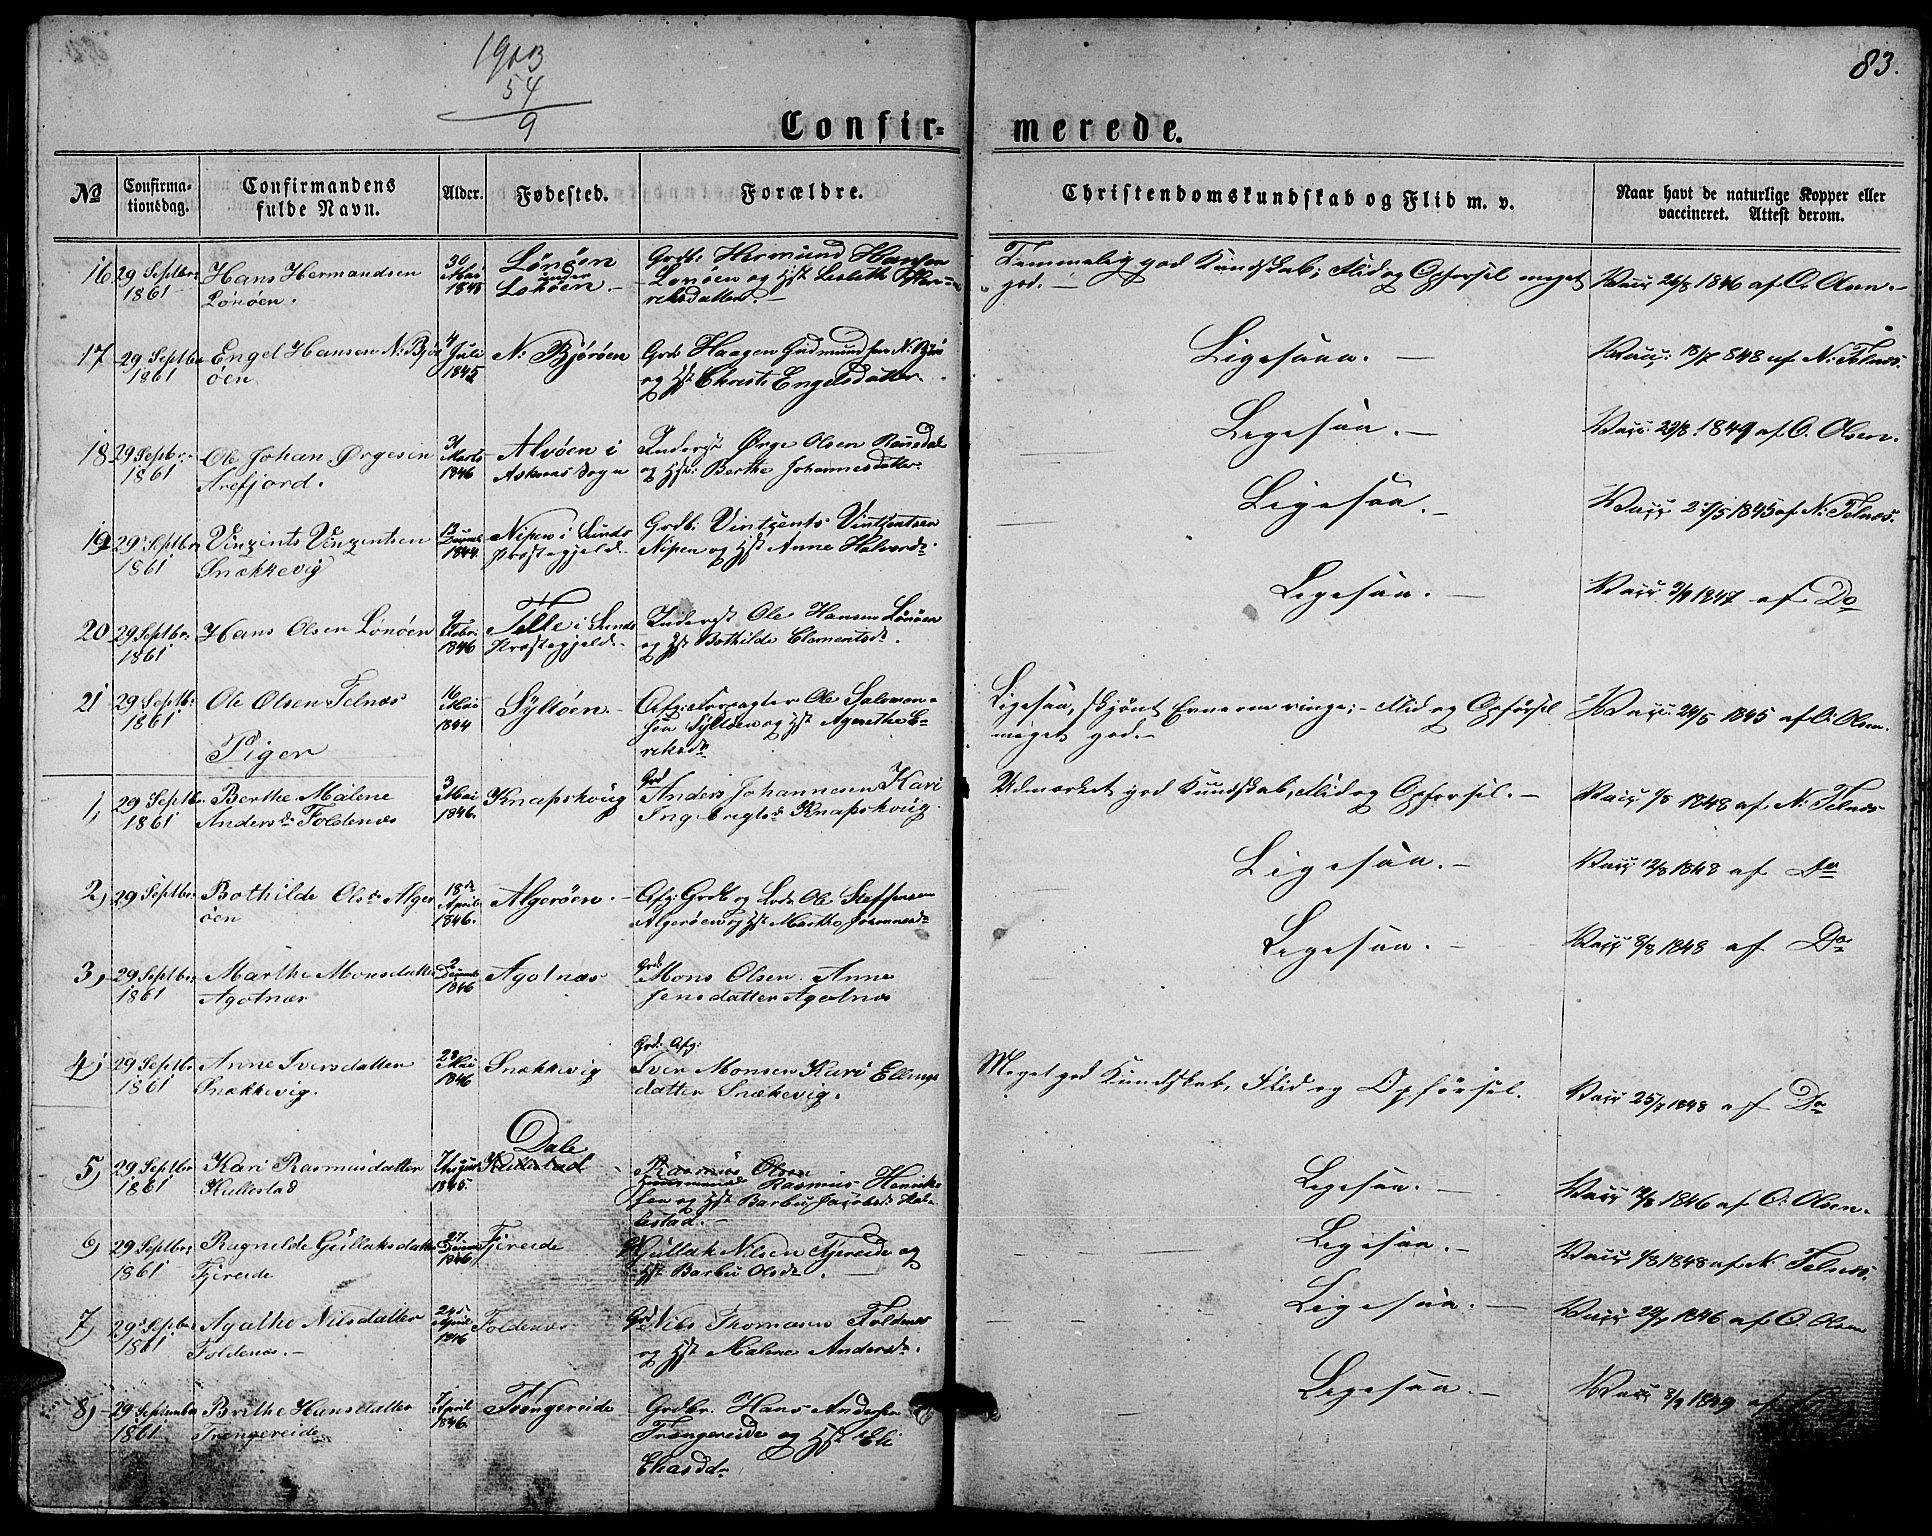 1903
54
9
83.
Confir-merede.
No
Confirma-
tionsdag.
Confirmandens
fulde Navn.
Alder.
Fødested.
Forældre.
Christendomskundskab og Flid m. v.
Naar havt de naturlige Kopper eller
vaccineret. Attest derom.
16 29 Septbr 1861
Hans Hermandsen
Lönöen.
30 Mai 1845
Lönöen
under
Loköen.
Grdb. Hermund Hansen
Lonöen og Hst Lisbeth
Temmelig god Kundskab; Flid og Opførsel meget
god.
Vacc 26/8 1846 af O. Olsen.
17 29 Septbr 1861
Engel Hansen N: Björ
öen
4 Juli 1845
N: Björöen
Grdb Haagen Gudmundsen N: Björ
og Hst Christi Engelsdatter.
Ligesaa.
Vacc: 18/7 848 af N: Telnæs.
18 29 Septbr. 1861
Ole Johan Ørgesen
Arefjord.
31 Marts 1846
Alvöen i
Askøens Sogn
Inderst Ørge Olsen
og Hst: Berthe Johannesdatter
Ligesaa.
Vacc 22/8 1849 af O. Olsen.
19 29 Septbr 1861
Vinzents Vinzentsen
Snekkevig
1844
Nipen i Sunds
Præstegjeld.
Grdb: Vintzents Vintzentsen
Nipen og Hst Anne Halvordr.
Ligesaa.
Vacc 2 /5 1845 af N: Telnæs.
20 29 Septbr. 1861
Hans Olsen Lönöen
9 Febr: 1846
Telle i Sunds
Præstegjeld.
Inderst Ole Hansen Lönöen
og Hst Bothilde Clementsdr.
Ligesaa.
Vacc 3/9 1847 af Do
21 29 Septbr 1861
Ole Olsen Telnæs
16 Mai 1844
Syltöen
Afg: Forpagter Ole Salomon-
sen Syltöen og Hst Agnethe E-
riksdr
Ligesaa, skjönt Evnerne ringe; Flid og Opførsel
meget god.
Vacc: 24/5 1845 af O: Olsen.
Piger
1, 29 Septbr. 1861
Berthe Malene
Andersdr Foldenæs
3 Mai 1846.
Knapskoug
Grdb
Anders Johannesen Kari
Ingebrigtsdr Knapskoug
Udmærket god Kundskab, Flid og Opførsel.
Vacc 1/8 1848 af N: Telnæs
2, 29 Septbr.
Bothilde Olsdr Alger
öen
18de April 1846.
Algeröen.
Afg: Grdb og Lods Ole Steffensen
Algeröen og Hst Marthe Johannesdr
Ligesaa.
Vacc: 12/8 1848 af Do
3, 29 Septbr 1861
Marthe Monsdatter
Agotnæs
2 Decemb 1846
Agotnæs
Grdb:
Mons Olsen. Anne
Jensdatter Agotnæs
Ligesaa.
Vacc 8/8 1848 af Do
4, 29 Septbr. 1861
Anne Iversdatter
Snækkevig.
23 Mai 1846
Snækkevig
Grdb: Afg:
Iver Monsen Kari Ellings
datter Snækevig.
Meget god Kundskab, Flid og Opførsel.
Vacc 25/7 1848 af Do
5, 29 Septbr 1861
Kari Rasmusdatter
Kullestad
7 August 1845.
Dale
Kullestad
Rasmus Olsen
Huusmand Rasmus Henrik-
sen og Hst Barbru Jacobsdr Kul-
lestad.
Ligesaa.
Vacc 12/8 1846 af O: Olsen.
6, 29 Septbr. 1861
Ragnilde Gullaksdatter
Fjereide
27 Decem 1846
Fjereide
Gullak Nilsen Fjereide og
Hst Barbru Olsdr.
Ligesaa.
Vacc 1/8 1848 af N. Telnæs.
7, 29 Septbr 1861
Agathe Nilsdatter
Foldenæs.
24de April 1846
Foldenæs
Grdb Nils Thomasen Foldnæs
og Hst Malene Andersdr.
Ligesaa.
Vacc 1846 af O. Olsen
8, 29 September 1861
Brithe Hansdatter
Trengereide
7 April 1846.
Trengereide
Grdbr. Hans Andersen
Trengereide og Hst Eli
Eliasdr
Ligesaa.
Vacc 8/9 1849 af